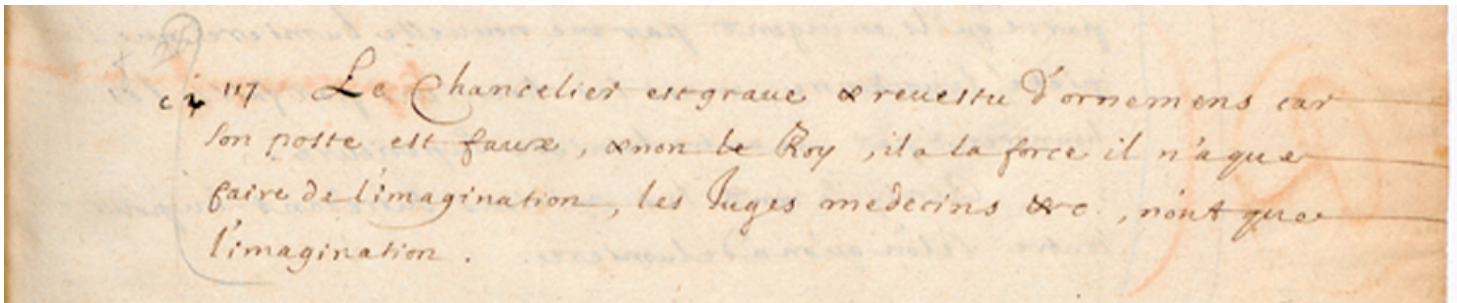 117 Le Chancelier est graue & reuestu d'ornemens car
son poste est faux, & non le Roy, il a la force il n'a que
faire de l'imagination, les Juges medecins &c., n'ont que
l'imagination.